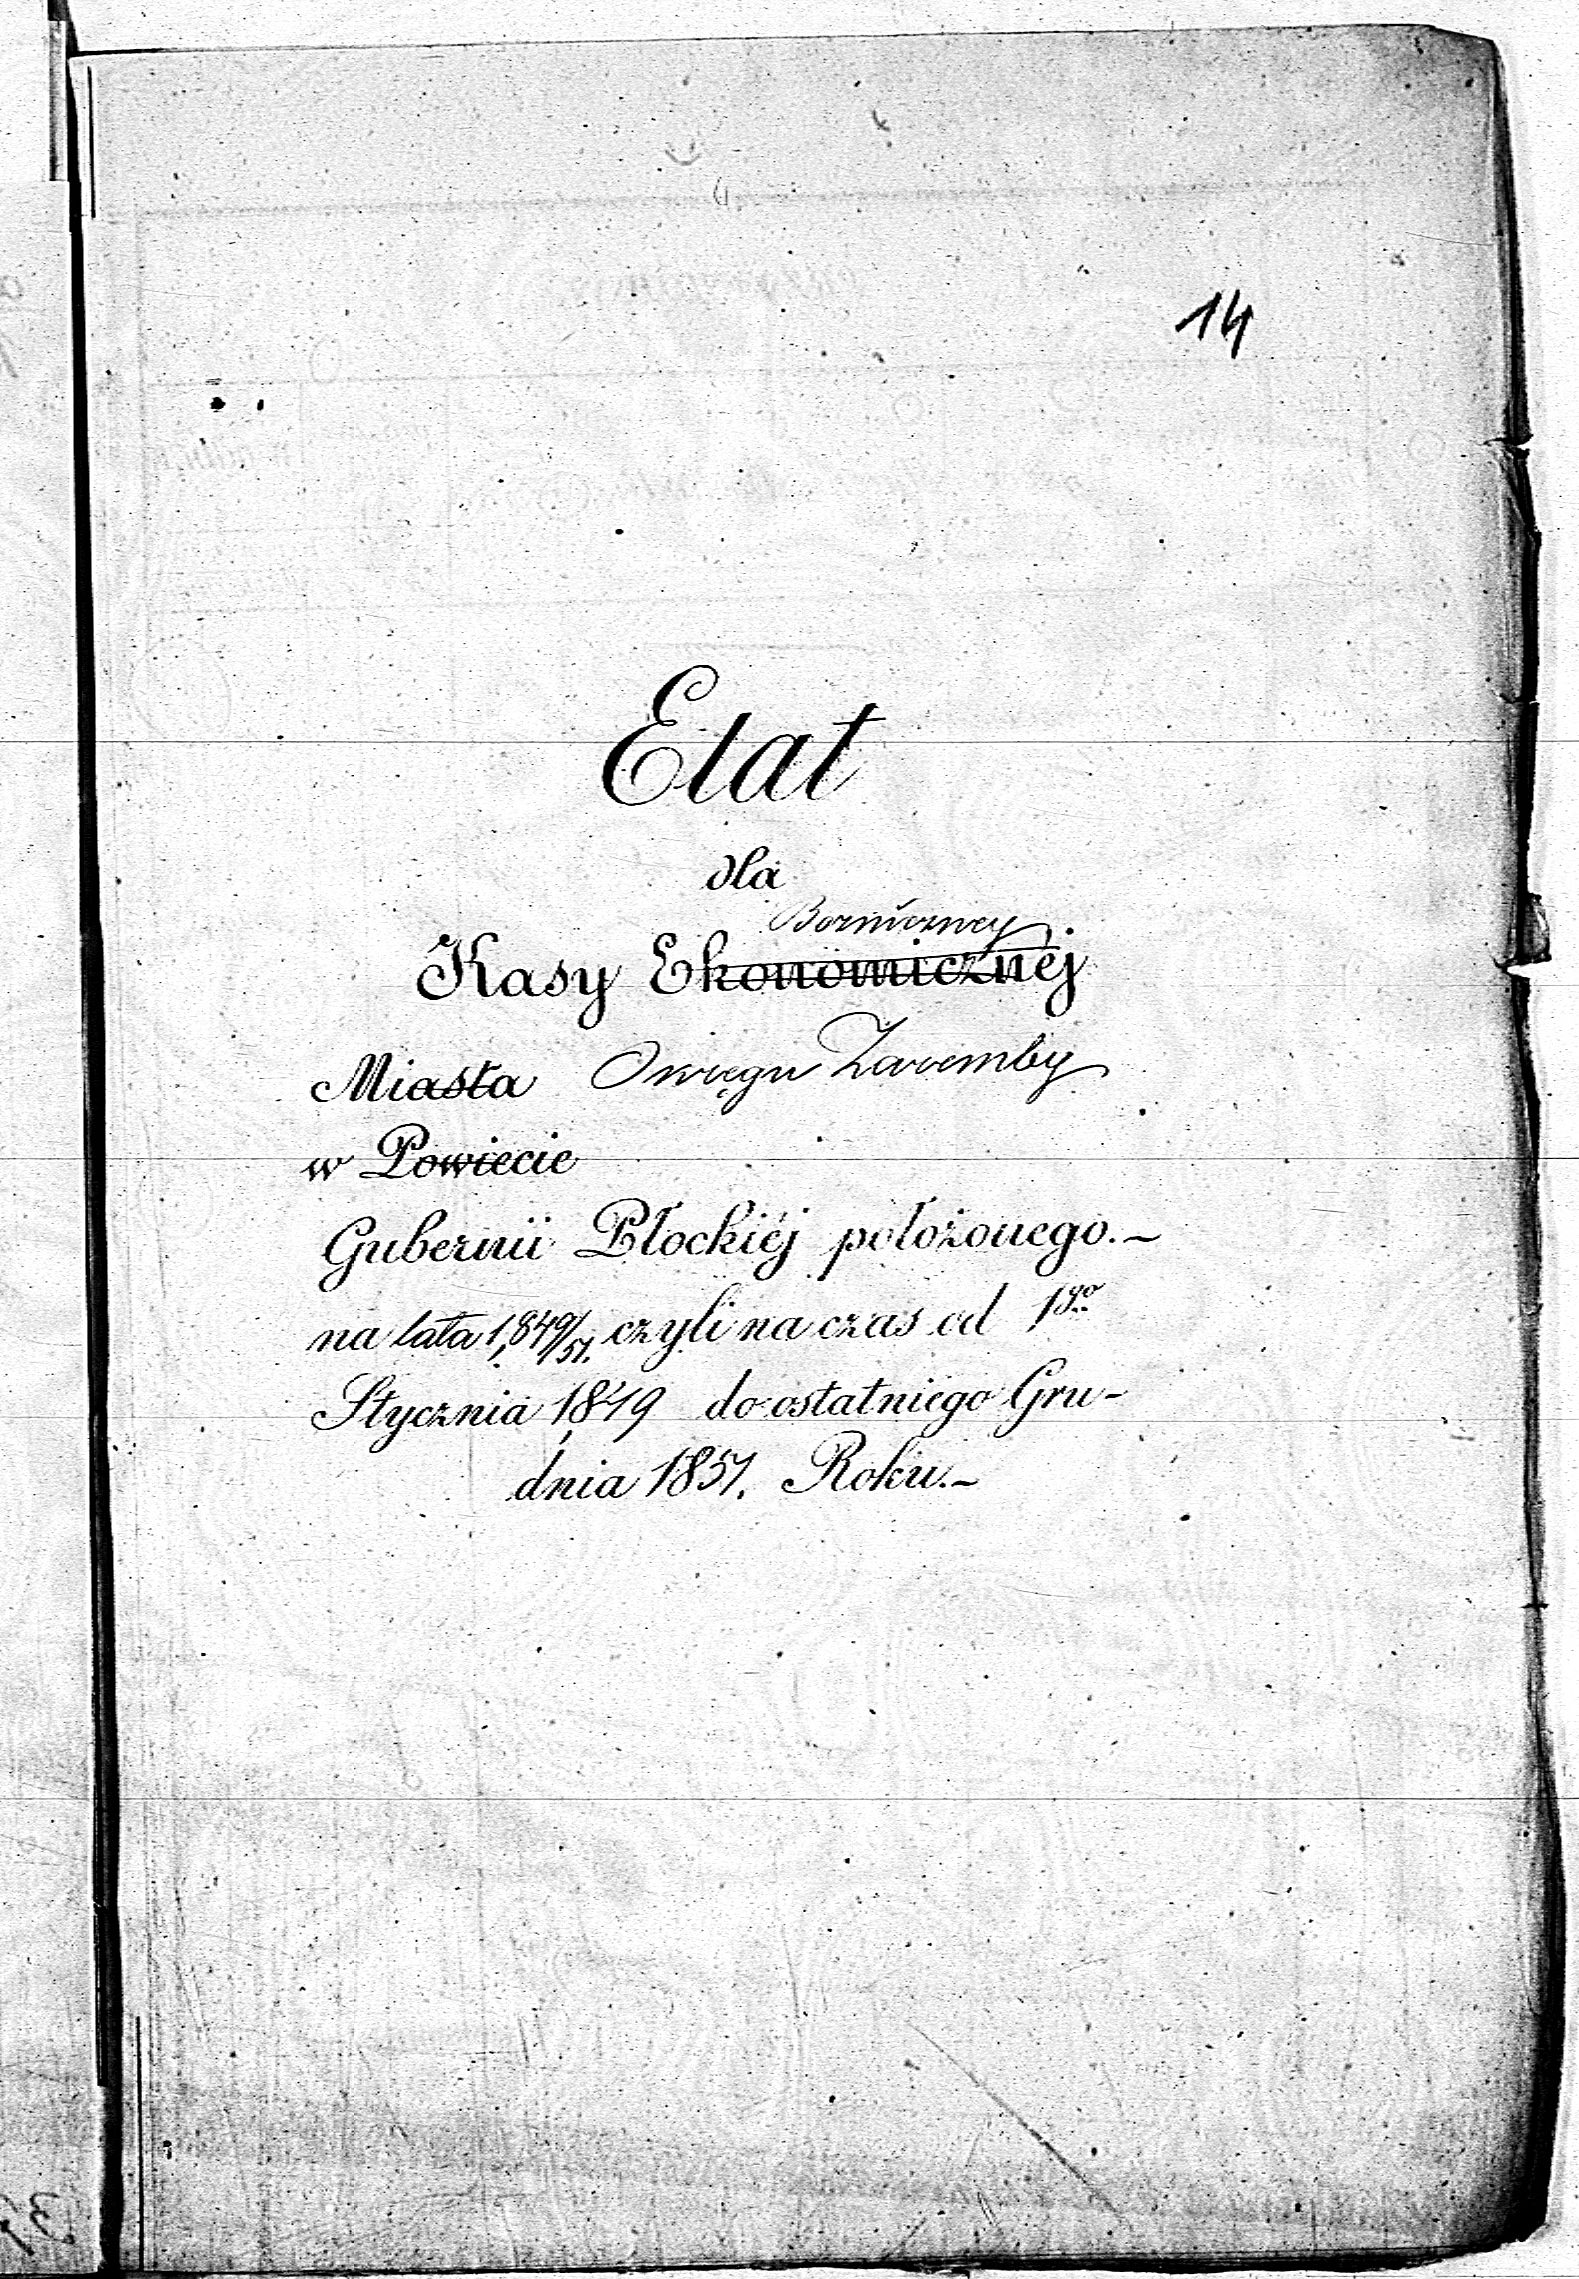 14
Etat
dla
Bożniczney
Kasy Ekonomicznéj
Miasta Okręgu Zaremby
w Powiecie
Gubernii Płockiéj położonego.~
na lata 1,849/51. czyli na czas od 1go
Stycznia 1,849 do ostatniego Gru-
dnia 1851. Roku.~